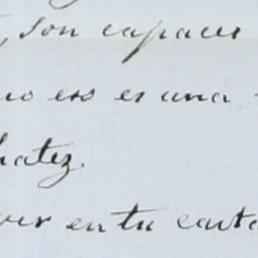 , son capaces
eso es una
hatez.
ver en tu carta